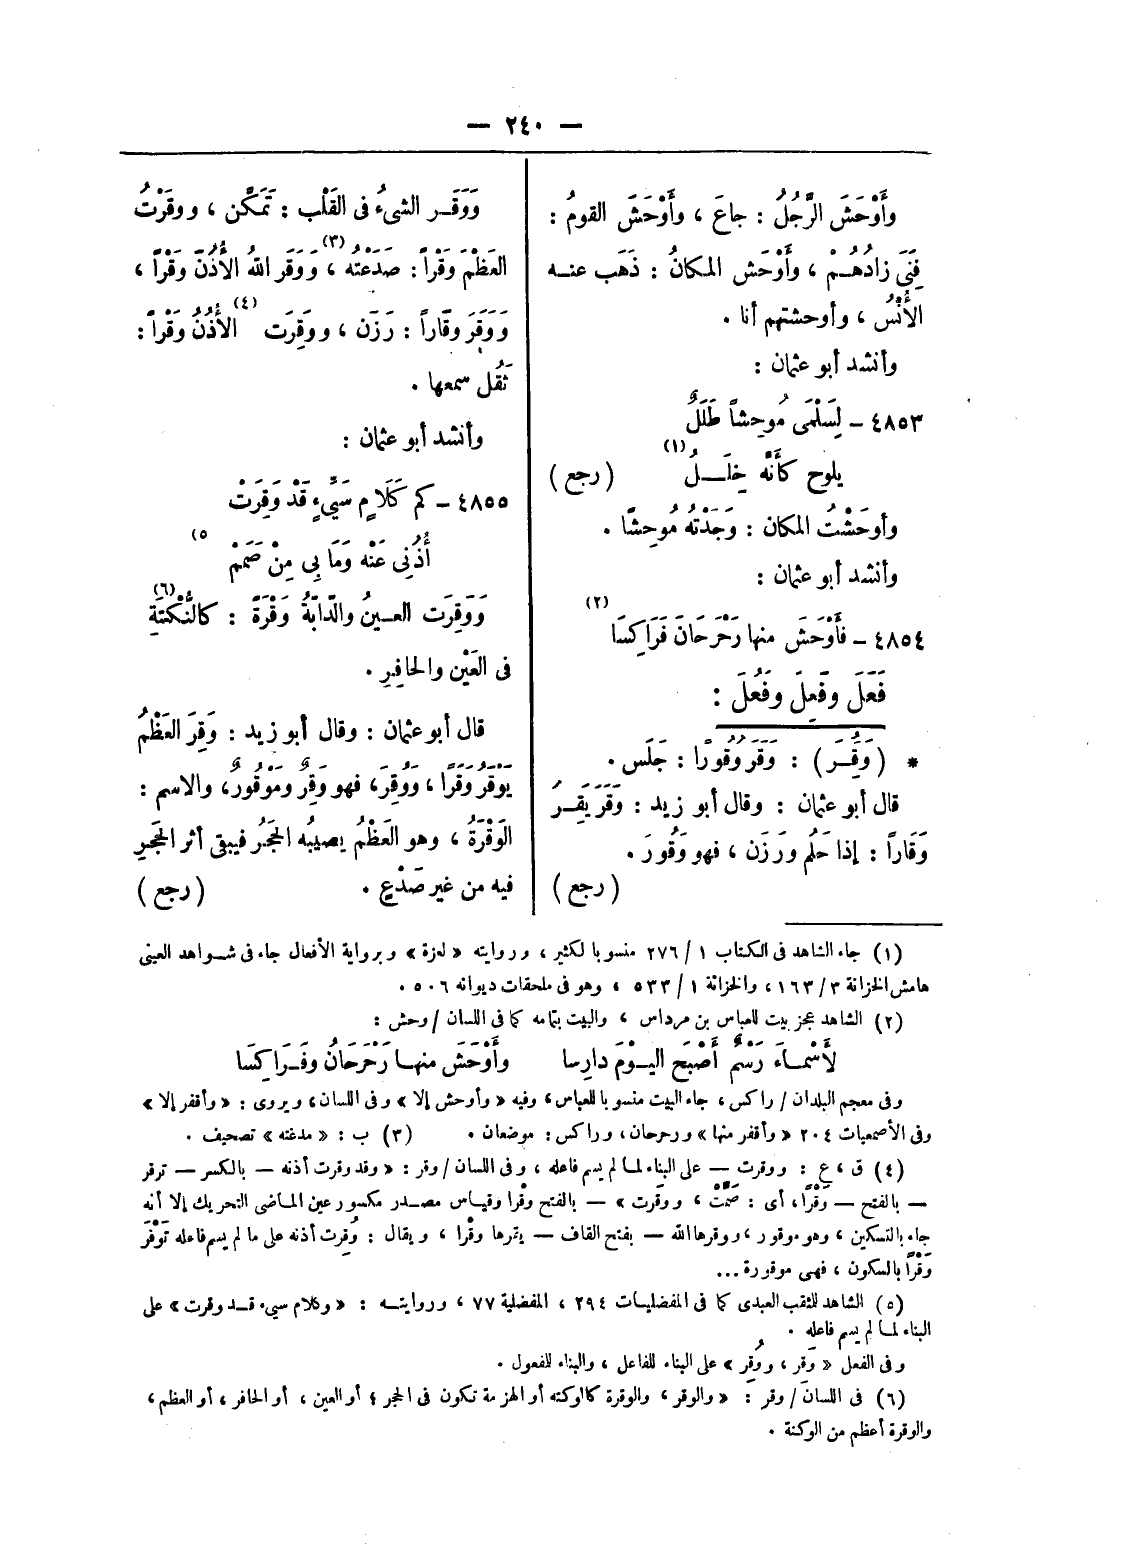 — ٢٤٠ —
وأَوْحَشَ الرَّجُلُ : جاعَ ، وأَوْحَشَ القومُ :
فَنِىَ زادُهُمْ ، وأَوْحَش المكانُ : ذَهَب عنه
الأُنْسُ ، وأوحشتهم أنا .
وأنشد أبو عثمان :
٤٨٥٣ – لِسَلْمَى مُوحِشاً طَلَلُ
يلوح كأَنَّه خِلَـــلُ (١) ( رجع )
وأوحَشْتُ المكان : وَجَدْتُه مُوحِشًا .
وأنشد أبو عثمان :
٤٨٥٤ – فأَوْحَشَ منها رَحْرَحَانَ فَرَاكِسَا (٢)
فَعَلَ وفَعِلَ وفَعُلَ :
* ( وَقِــرَ ) : وَقَرَ وُقُورًا : جَلَس .
قال أبو عثمان : وقال أبو زيد : وَقَرَ يَقِــرُ
وَقَاراً : إذا حَلُم ورَزَن ، فهو وَقُورَ .
( رجع )
وَوَقَــر الشىءُ فى القَلْب : تَمَكَّن ، ووقَرْتُ
العَظْمَ وَقْراً : صدَعْتُه (٣) ، وَوَقَر اللهُ الأُذُنَ وَقْراً ،
وَوَقَرَ وقَاراً : رَزَن ، ووَقِرَت (٤) الأُذُنُ وَقْراً :
ثَقُل سمعها .
وأنشد أبو عثمان :
٤٨٥٥ – كم كَلَامٍ سَيِّىءٍ قَدْ وَقِرَتْ
أُذُنِى عَنْه وَمَا بِى مِنْ صَمَمْ (٥
وَوَقِرَت العــينُ والدّابّةُ وَقْرَةً : كالنُّكْتَةِ (٦)
فى العَيْن والحافِرِ .
قال أبو عثمان : وقال أبو زيد : وَقِرَ العَظْمُ
يَوْقَرُ وَقَرًا ، ووُقِرَ، فهو وَقِرٌ ومَوْقُورٌ، والاسم :
الوَقْرَةُ ، وهو العَظْمُ يصيبُه الحجَرُ فيبقى أثر الحَجَرِ
فيه من غير صَدْعٍ . ( رجع )
(١) جاء الشاهد فى الكتاب ١ / ٢٧٦ منسوبا لكثير ، وروايته « لعزة » وبرواية الأفعال جاء فى شــواهد العينى
هامش الخزانة ٣ / ١٦٣ ، والخزانة ١ / ٥٣٣ ، وهو فى ملحقات ديوانه ٥٠٦ .
(٢) الشاهد عجز بيت للعباس بن مرداس ، والبيت بتمامه كما فى اللسان / وحش :
لأَسْمــاءَ رَسْمٌ أَصْبَح اليــوْمَ دارِسا وأَوْحَشَ منهــا رَحْرَحَانُ وفَــرَاكِسَا
وفى معجم البلدان / راكس ، جاء البيت منسوبا للعباس، وفيه « وأوحش إلا » وفى اللسان، ويروى : « وأقفر إلا »
وفى الأصمعيات ٢٠٤ « وأقفر منها » ورحرحان، وراكس : موضعان . (٣) ب : « مدغته » تصحيف .
(٤) ق ، ع : ووقرت — على البناء لمـا لم يسم فاعله ، وفى اللسان / وقر : « وقد وقرت أذنه — بالكسر — توقر
— بالفتح — وَقْرًا، أى : صَمَّتْ ، ووقَرت » — بالفتح وقْرا وقياس مصــدر مكسور عين المـاضى التحريك إلا أنه
جاء بالتسكين ، وهو موقور ، ووقرها الله — بفتح القاف — يقرها وقْرا ، ويقال : وُقِرت أذنه على ما لم يسم فاعله تَوْقَرُ
وَقْرًا بالسكون ، فهى موقورة ...
(٥) الشاهد للمثقب العبدى كما فى المفضليــات ٢٩٤ ، المفضلية ٧٧ ، وروايتــه : « وكلام سيىء قــد وقرت » على
البناء لمــا لم يسم فاعله .
وفى الفعل « وَقر ، ووُقِر » على البناء للفاعل ، والبناء للمفعول .
(٦) فى اللسان / وقر : « والوقر ، والوقرة كالوكتة أو الهزمة تكون فى الحجر ؛ أو العين ، أو الحافر ، أو العظم ،
والوقرة أعظم من الوكتة .